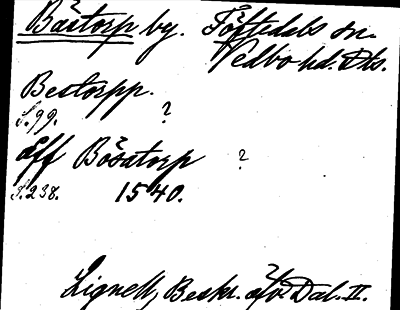 Båstorp by. Töftedals sn.
Vedbo hd. Dls.
Bestorpp.
S. 99. ?
Åff Bösatorp ?
S. 238. 1540.
Lignell, Beskr. öfv. Dal. II.